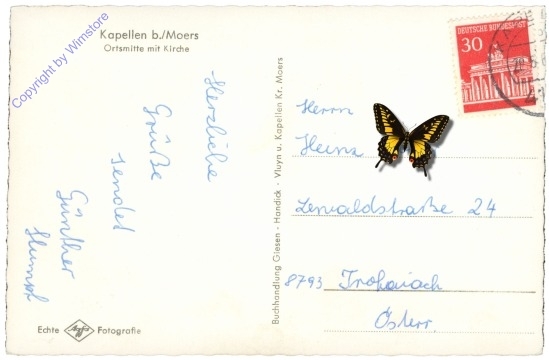 Kapellen b./Moers
Ortsmitte mit Kirche
Copyright by Wimstore
Herzliche
Grüße
sendet
Günther
Echte Agfa Fotografie
Buchhandlung Giesen - Handick - Vluyn u. Kapellen Kr. Moers
DEUTSCHE BUNDESPOST
30
Herrn
Heinz
24
8793 Trofaiach
Österr.